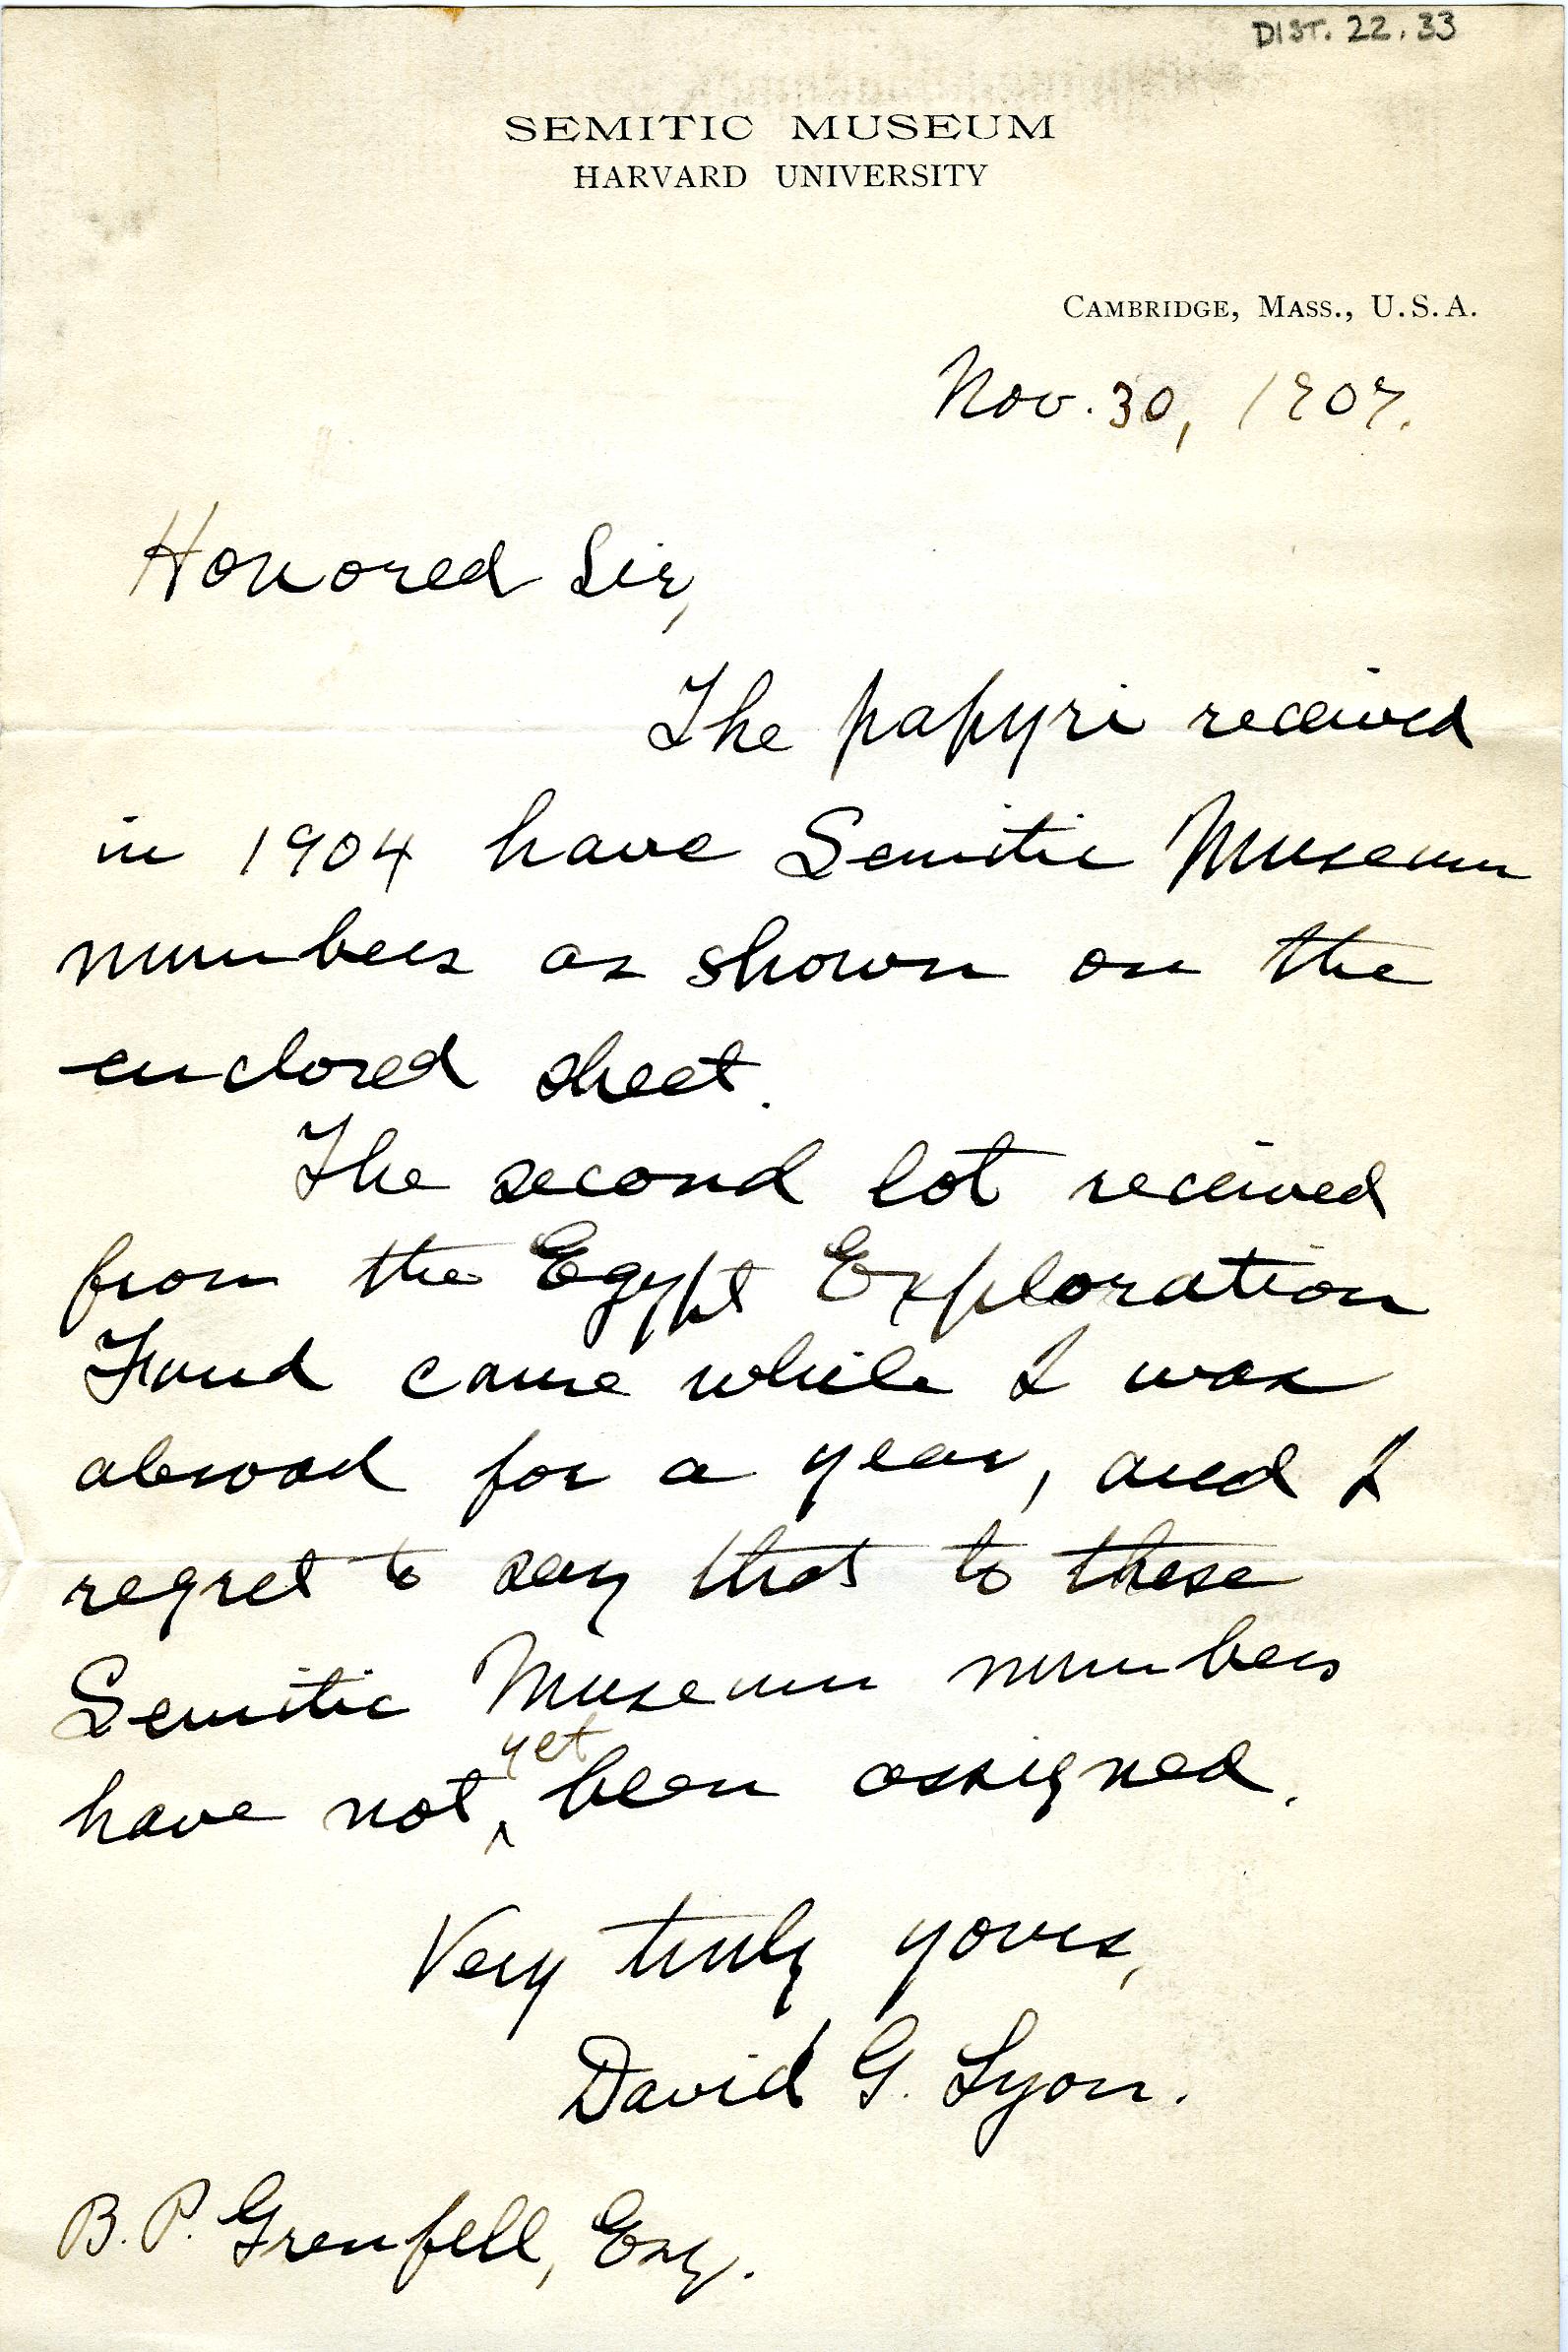 DIST. 22.33
SEMITIC MUSEUM
HARVARD UNIVERSITY
CAMBRIDGE, MASS., U.S.A.
Nov. 30, 1907.
Honored Sir,
The papyri received
in 1904 have Semitic Museum
numbers as shown on the
enclosed sheet.
The second lot received
from the Egypt Exploration
Fund came while I was
abroad for a year, and I
regret to say that to these
Semitic Museum numbers
yet
have not ‸ been assigned.
Very truly yours,
David G. Lyon.
B. P. Grenfell, Esq.